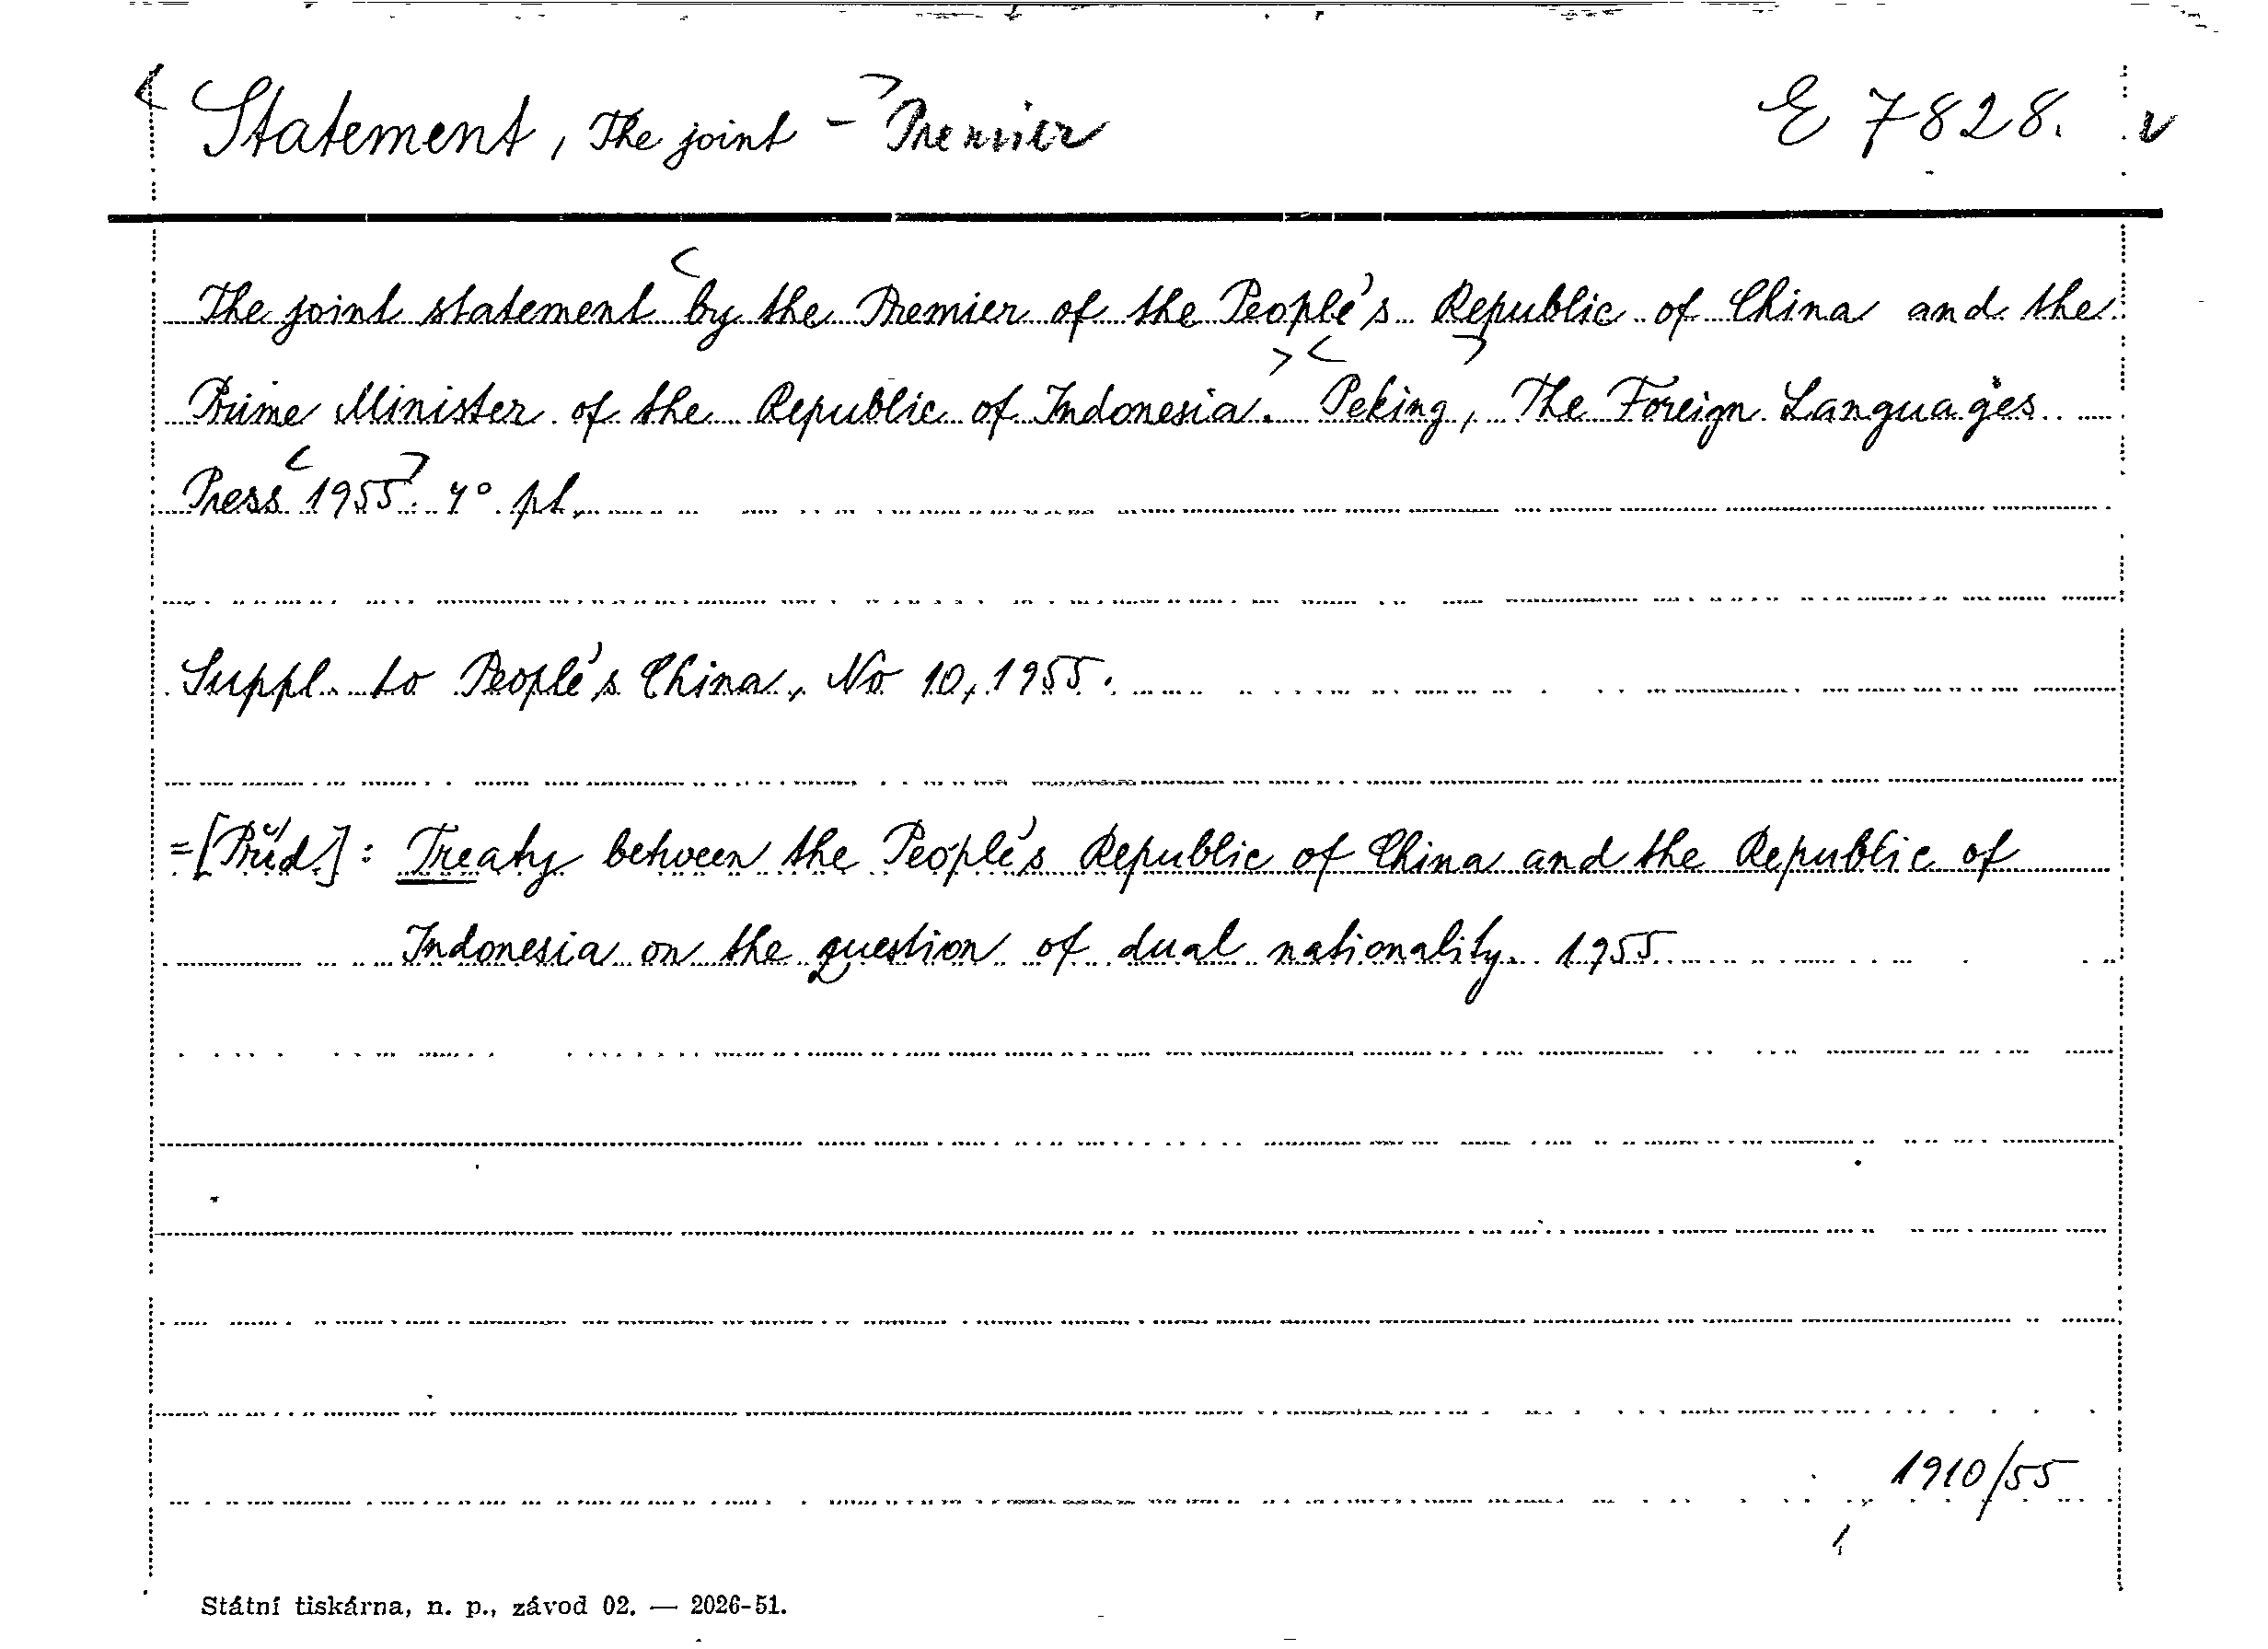 Statement, The joint - Premier E 7828. v
The joint statement by the Premier of the People's Republic of China and the
Prime Minister of the Republic of Indonesia. Peking, The Foreign Languages
Press 1955. 4° pl.
Suppl. to People's China, No 10, 1955.
=[Příd.]: Treaty between the People's Republic of China and the Republic of
Indonesia on the question of dual nationality. 1955
1910/55
Státní tiskárna, n. p., závod 02. — 2026-51.